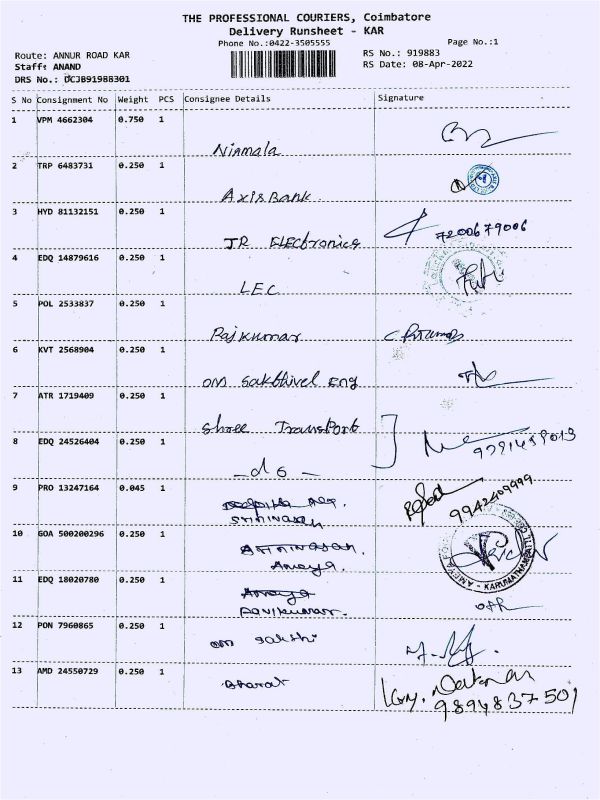 THE PROFESSIONAL COURIERS, Coimbatore
Delivery Runsheet - KAR
Phone No.:0422-3505555
Page No.:1
Route: ANNUR ROAD KAR
RS No.: 919883
Staff: ANAND
RS Date: 08-Apr-2022
DRS No.: DCJB91988301
S No Consignment No Weight PCS Consignee Details Signature
1 VPM 4662304 0.750 1
Nirmala
2 TRP 6483731 0.250 1
Axis Bank
3 HYD 81132151 0.250 1
JR Electronics 7200679006
4 EDQ 14879616 0.250 1
LEC
5 POL 2533837 0.250 1
Rajkumar
6 KVT 2568904 0.250 1
om Sakthivel Eng
7 ATR 1719409 0.250 1
Shree Transport
8 EDQ 24526404 0.250 1
- do -
9 PRO 13247164 0.045 1
9942409999
Srinivasan
10 GOA 500200296 0.250 1
Srinivasan.
Amaya.
KARUMATHAMPATTI
11 EDQ 18020780 0.250 1
Amaya
Ravikumar.
12 PON 7960865 0.250 1
om sakthi
13 AMD 24550729 0.250 1
Bharat
9894837501